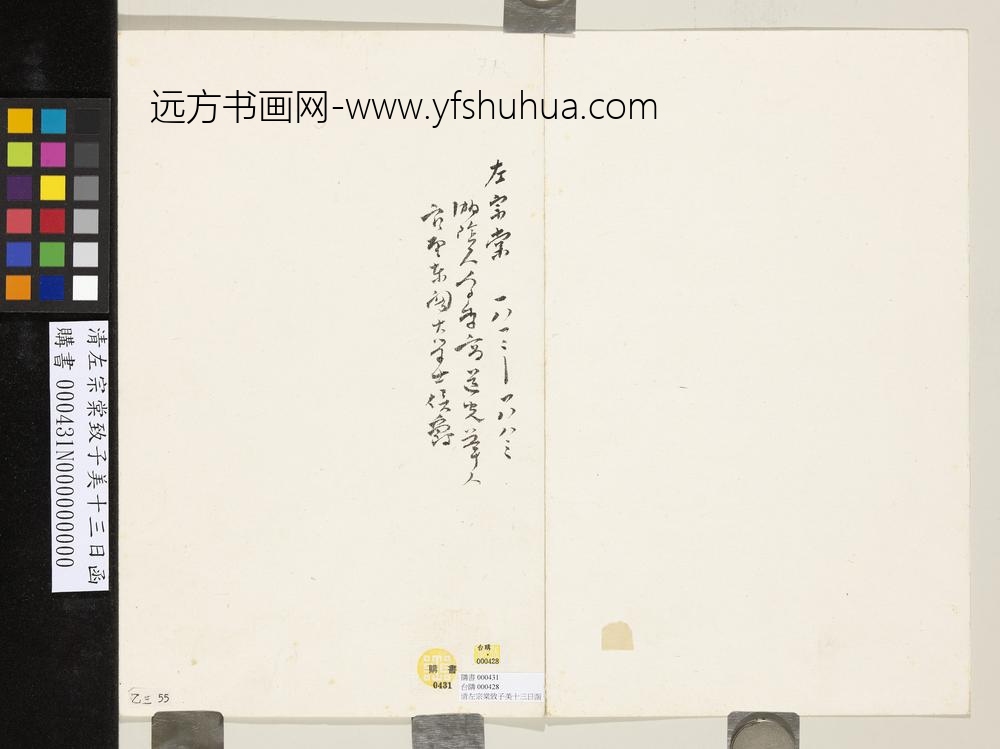 远方书画网-www.yfshuhua.com
左宗棠 一八一二—一八八三
湘阴人字季高道光举人
官至东阁大学士侯爵
清左宗棠致子美十三日函
購書 000431N000000000
台購
000428
購書
0431
購書 000431
台購 000428
清左宗棠致子美十三日函
乙三 55